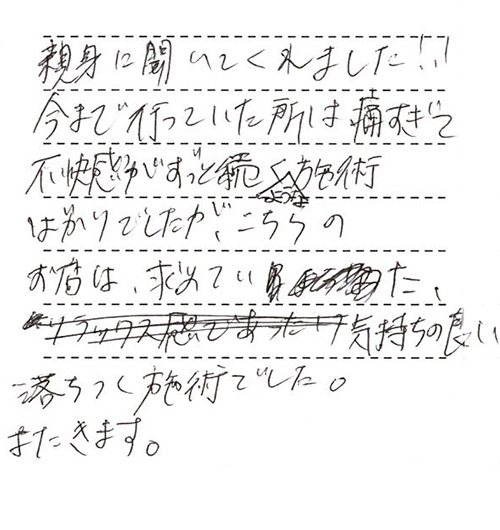 親身に聞いてくれました!!
今まで行っていた所は痛すぎて
不快感がずっと続くような施術
ばかりでしたが、こちらの
お店は、求めていた、
気持ちの良い
落ちつく施術でした。
またきます。